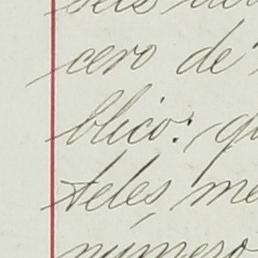 seis
cero de
blico: q
teles, me
número